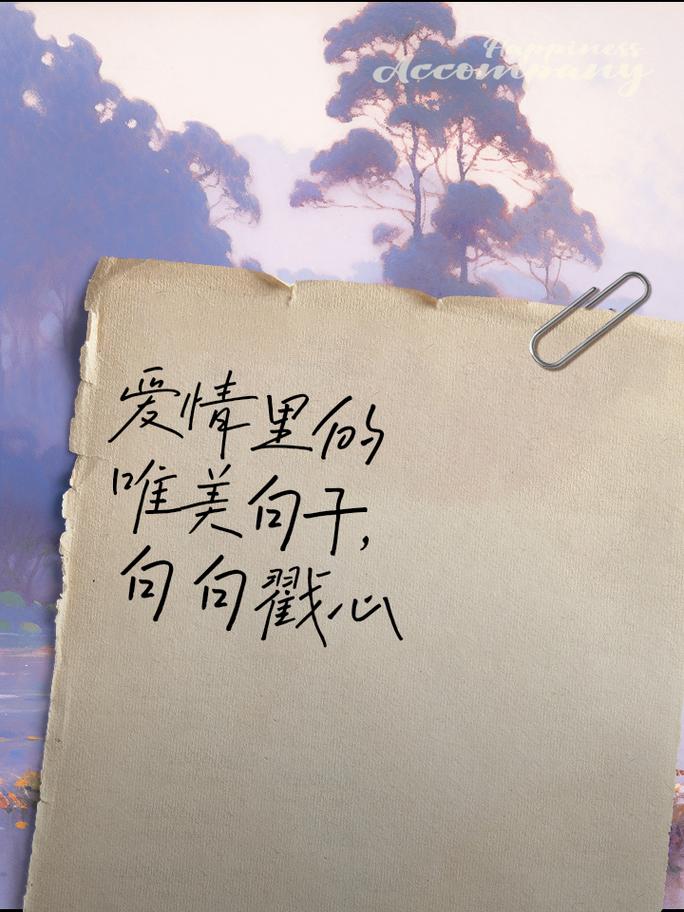 Happiness
Accompany
爱情里的
唯美句子，
句句戳心